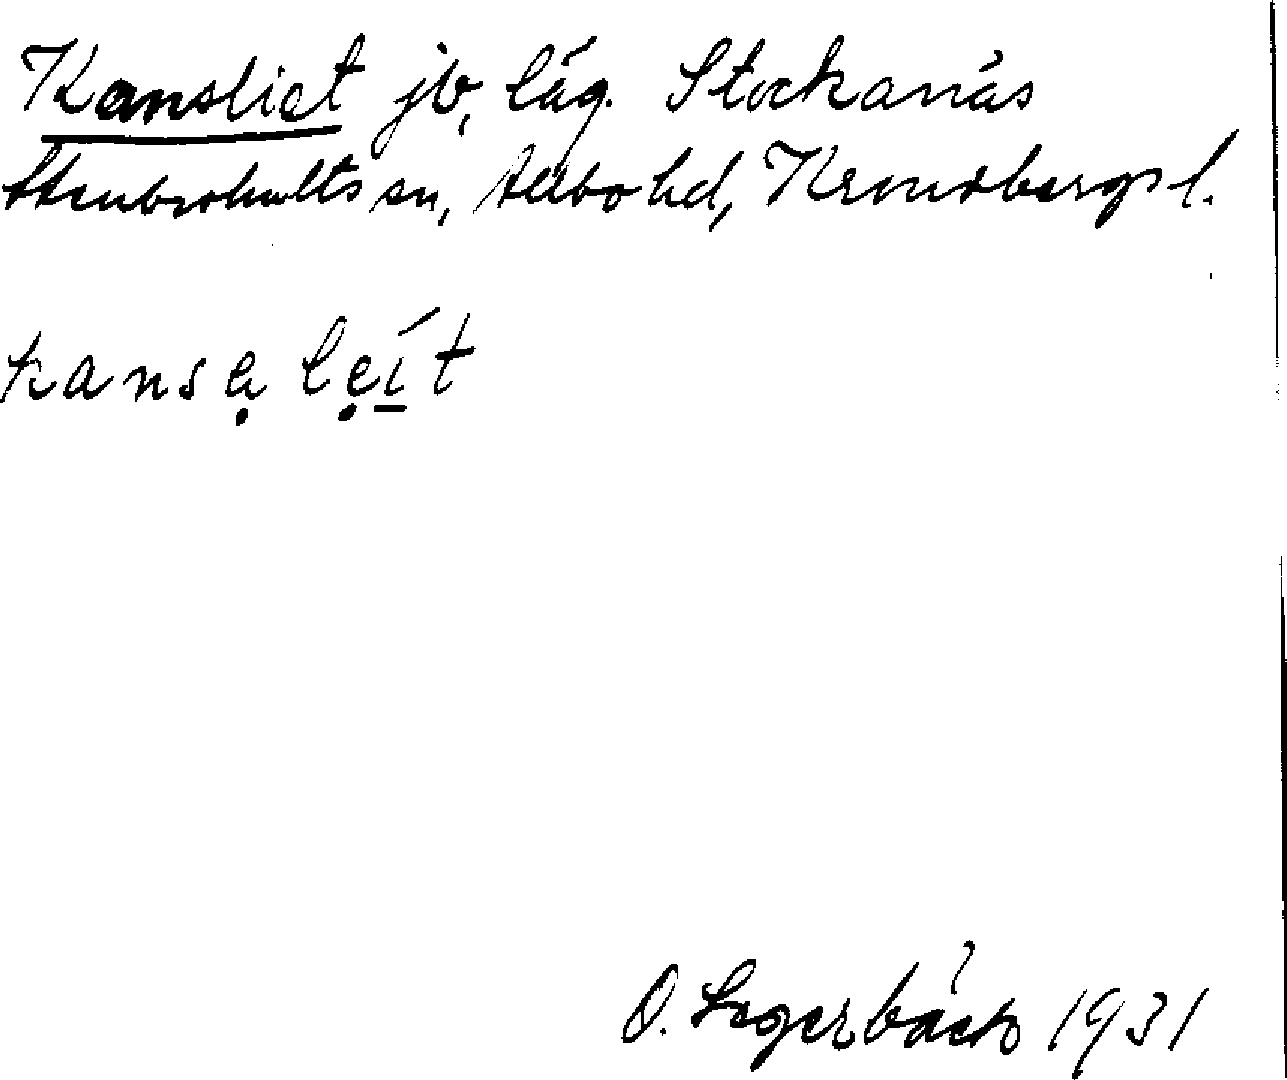 Kansliet jb, läg. Stockanäs
Stenbrohults sn, Allbo hd, Kronobergs l.
kansələít
O. Segerbäck 1931